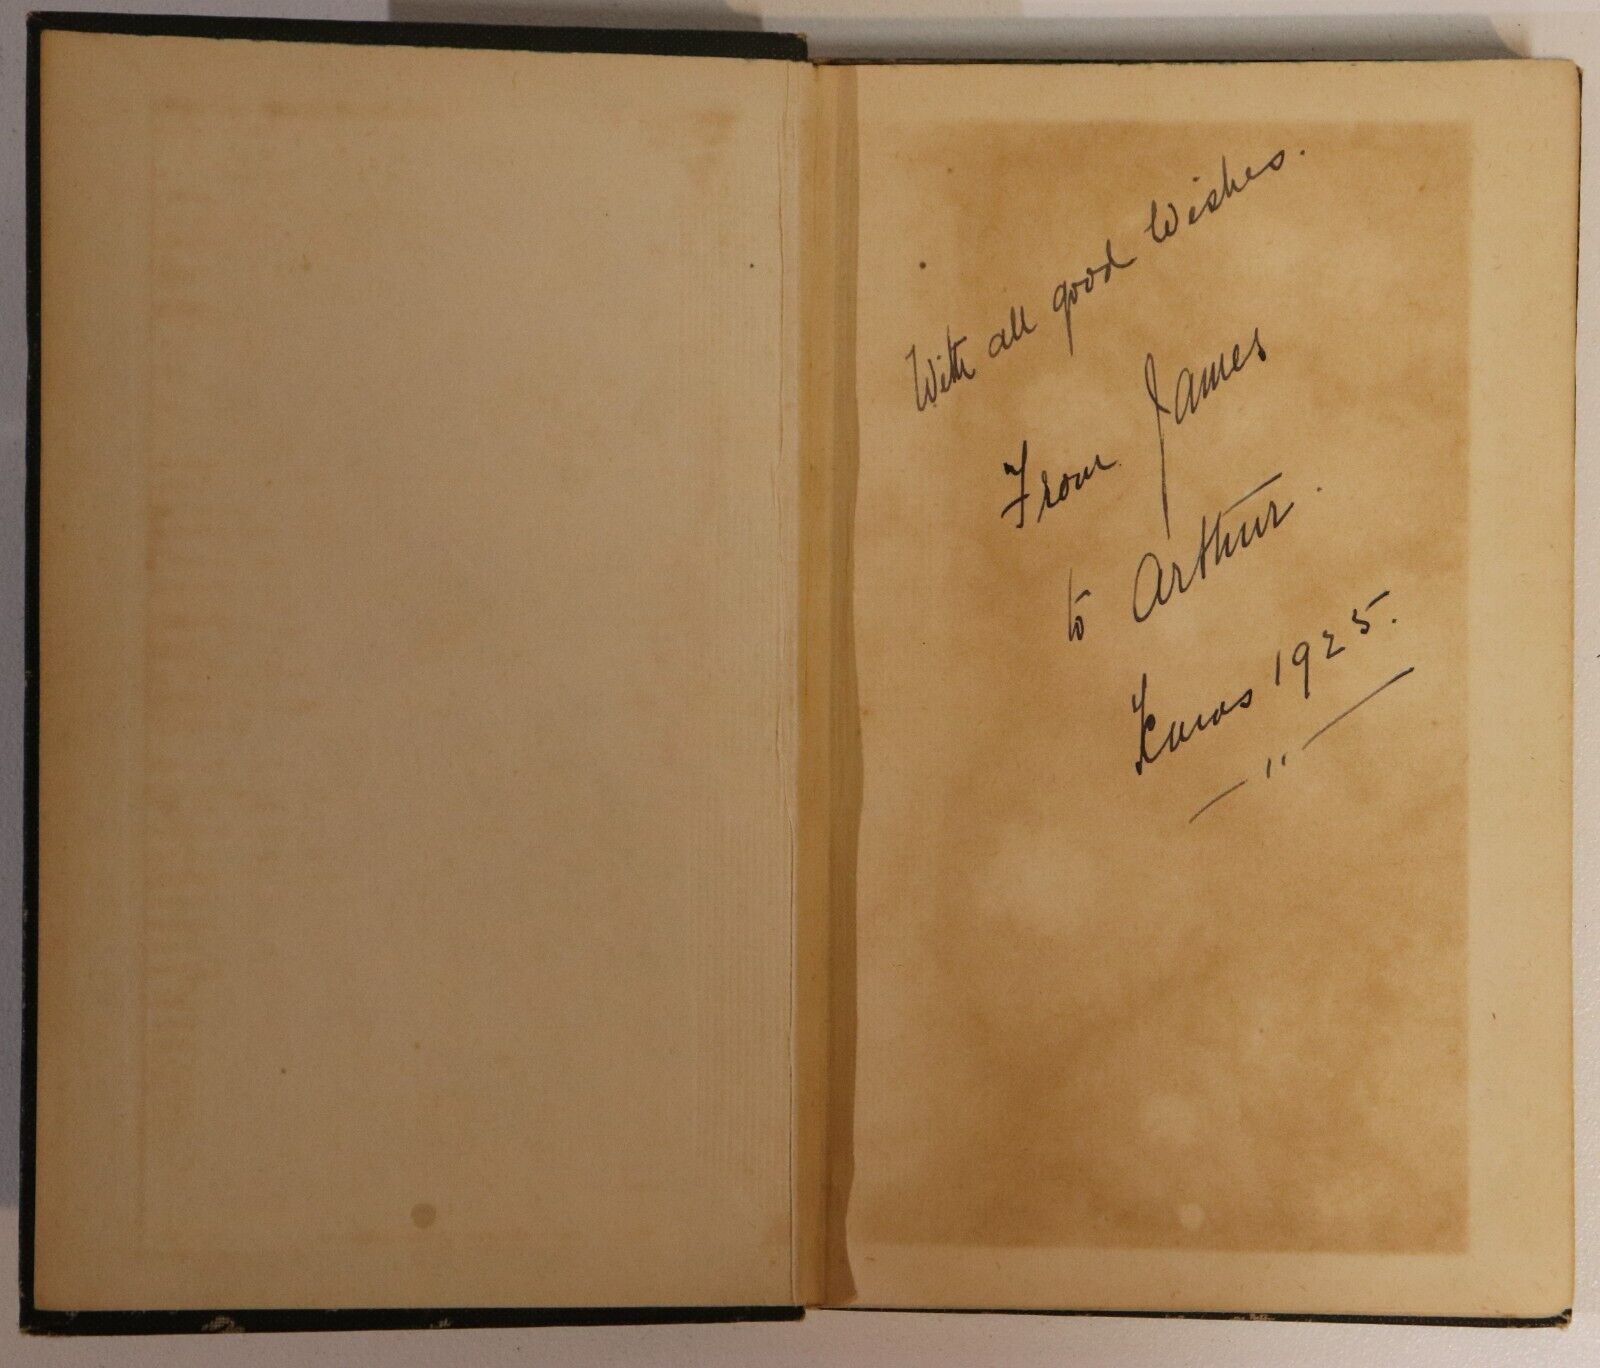 With all good Wishes.
From James
to Arthur.
Xmas 1925.